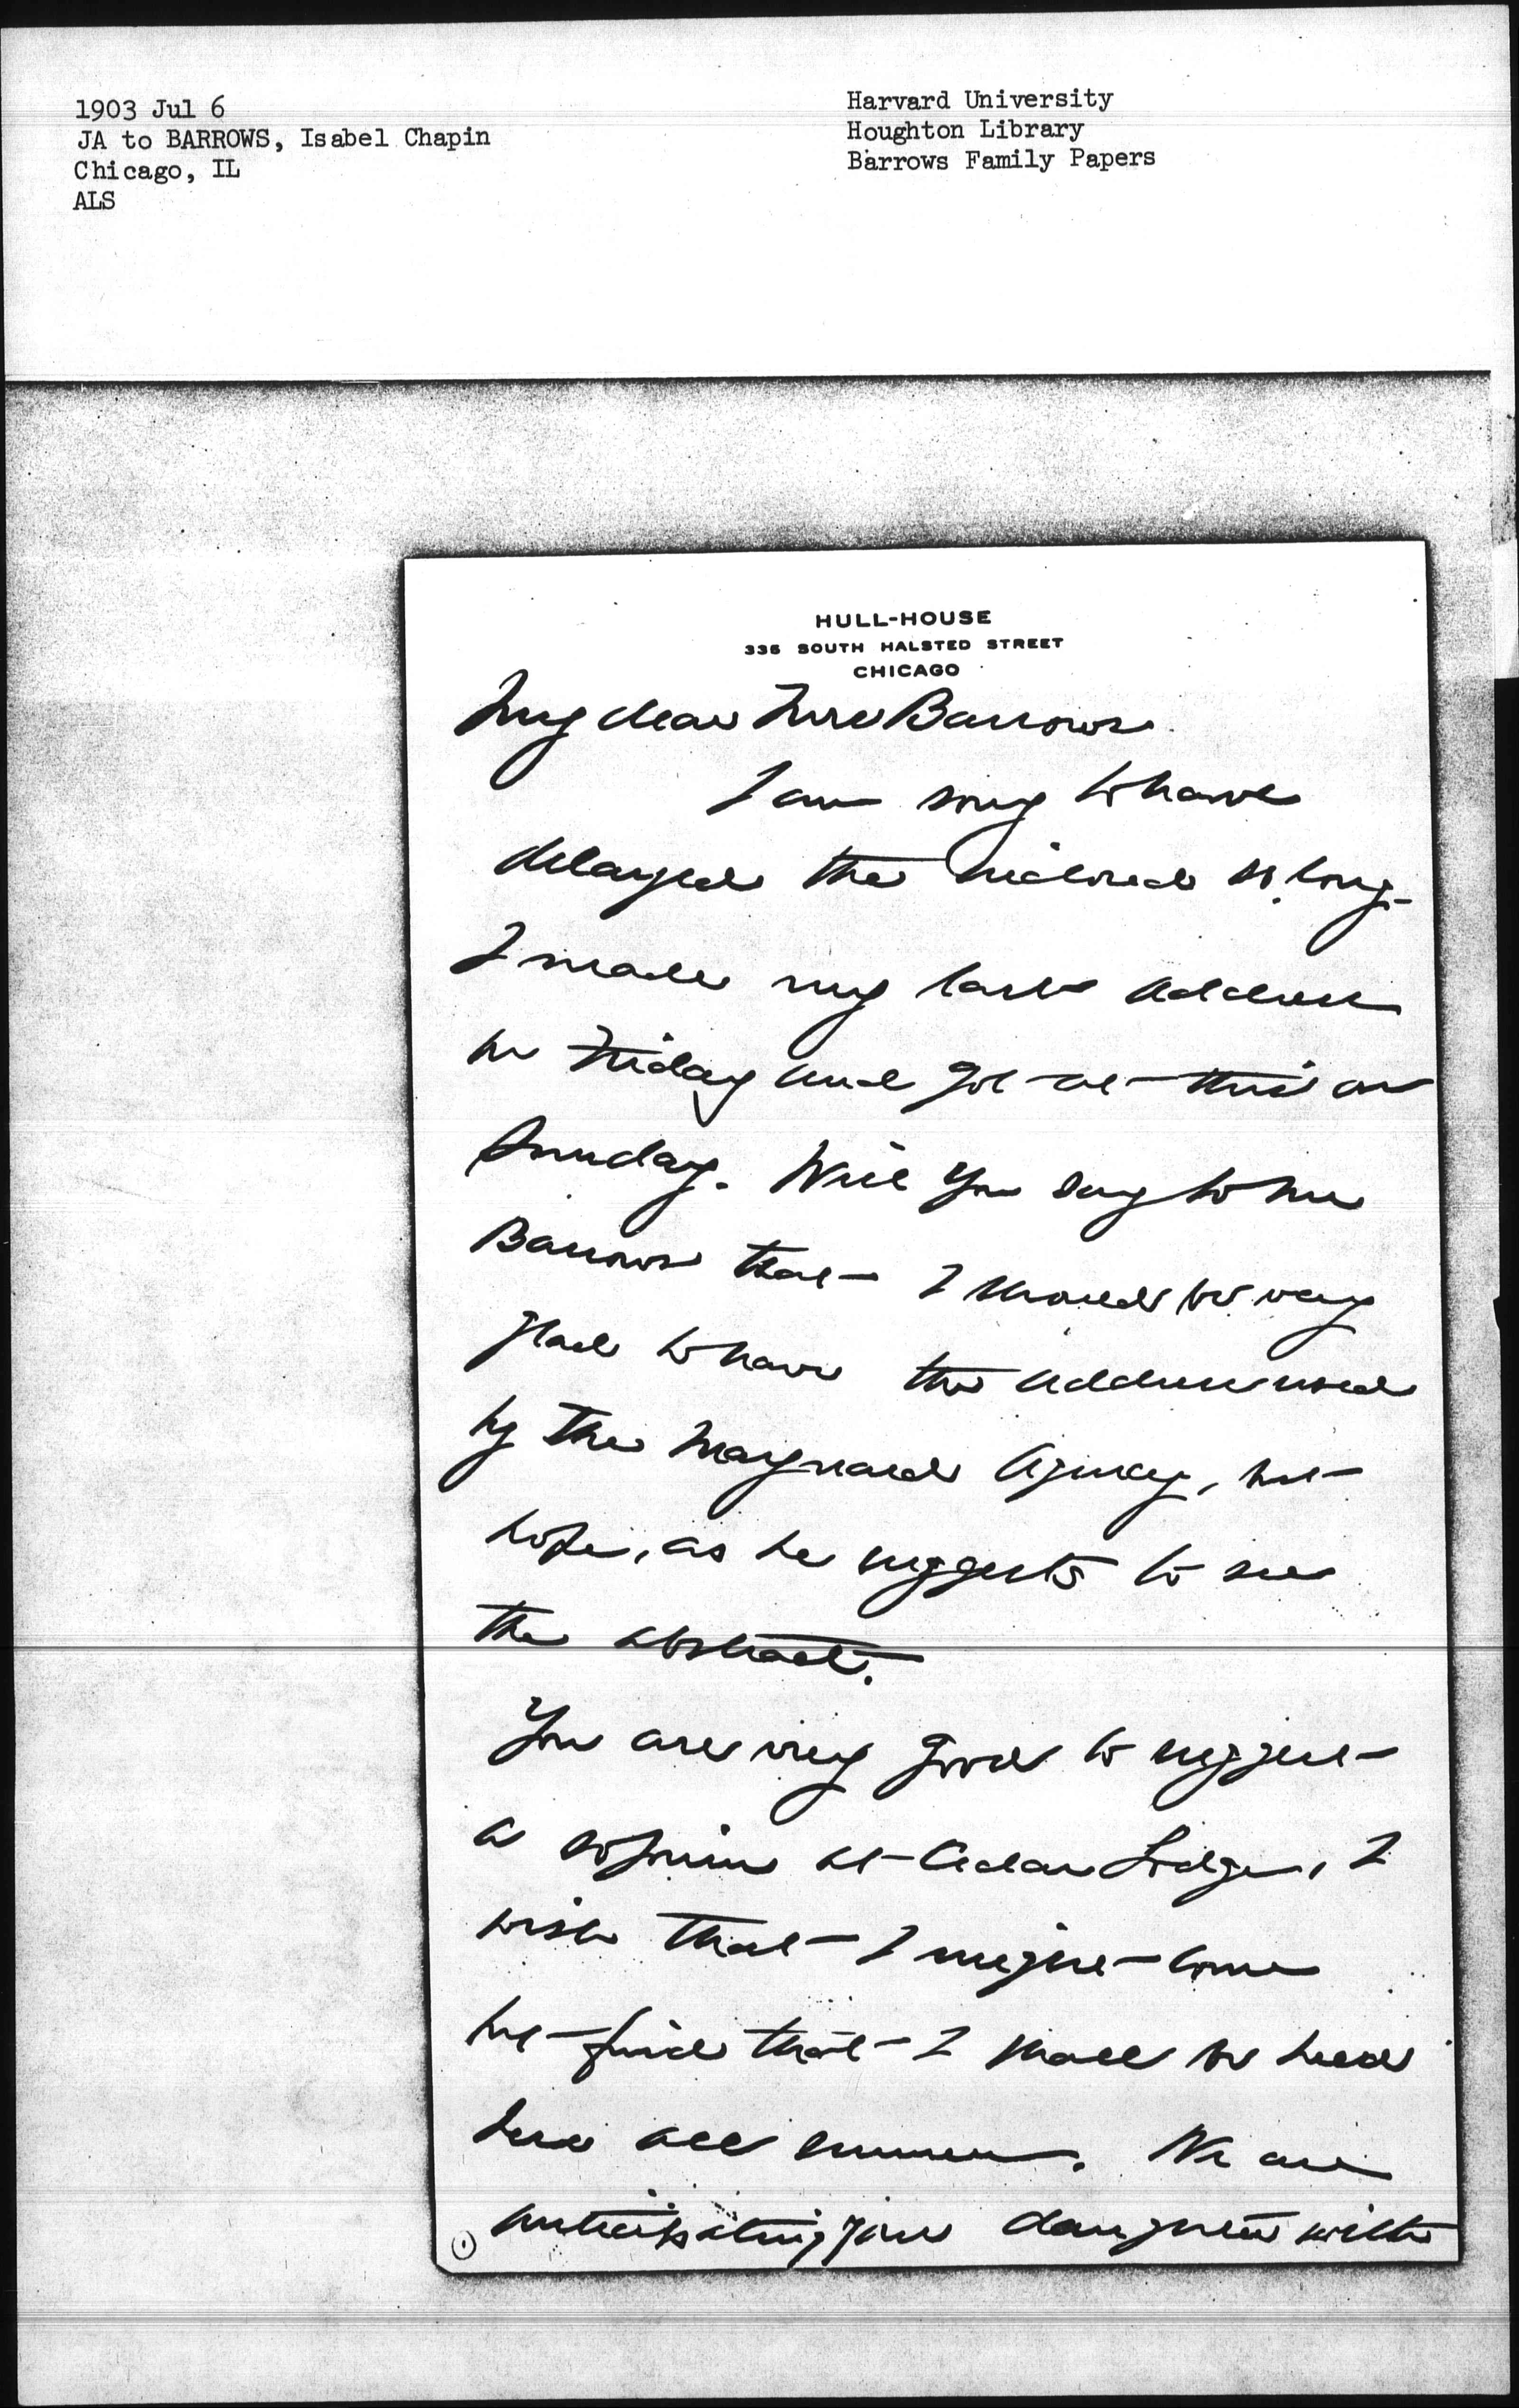 1903 Jul 6
JA to BARROWS, Isabel Chapin
Chicago, IL
ALS
Harvard University
Houghton Library
Barrows Family Papers
HULL-HOUSE
335 SOUTH HALSTED STREET
CHICAGO
My dear Mrs Barrows
I am sorry to have
delayed the enclosed so long—
I made my last address
on Friday and got at this on
Sunday. Will you say to Mr
Barrows that I should be very
glad to have the address used
by the Maynard Agency, but
hope, as he suggests to see
the abstract.
You are very good to suggest
a sojourn at Cedar Lodge, I
wish that I might come
but find that I shall be held
here all summer. We are
anticipating your daughter with
1